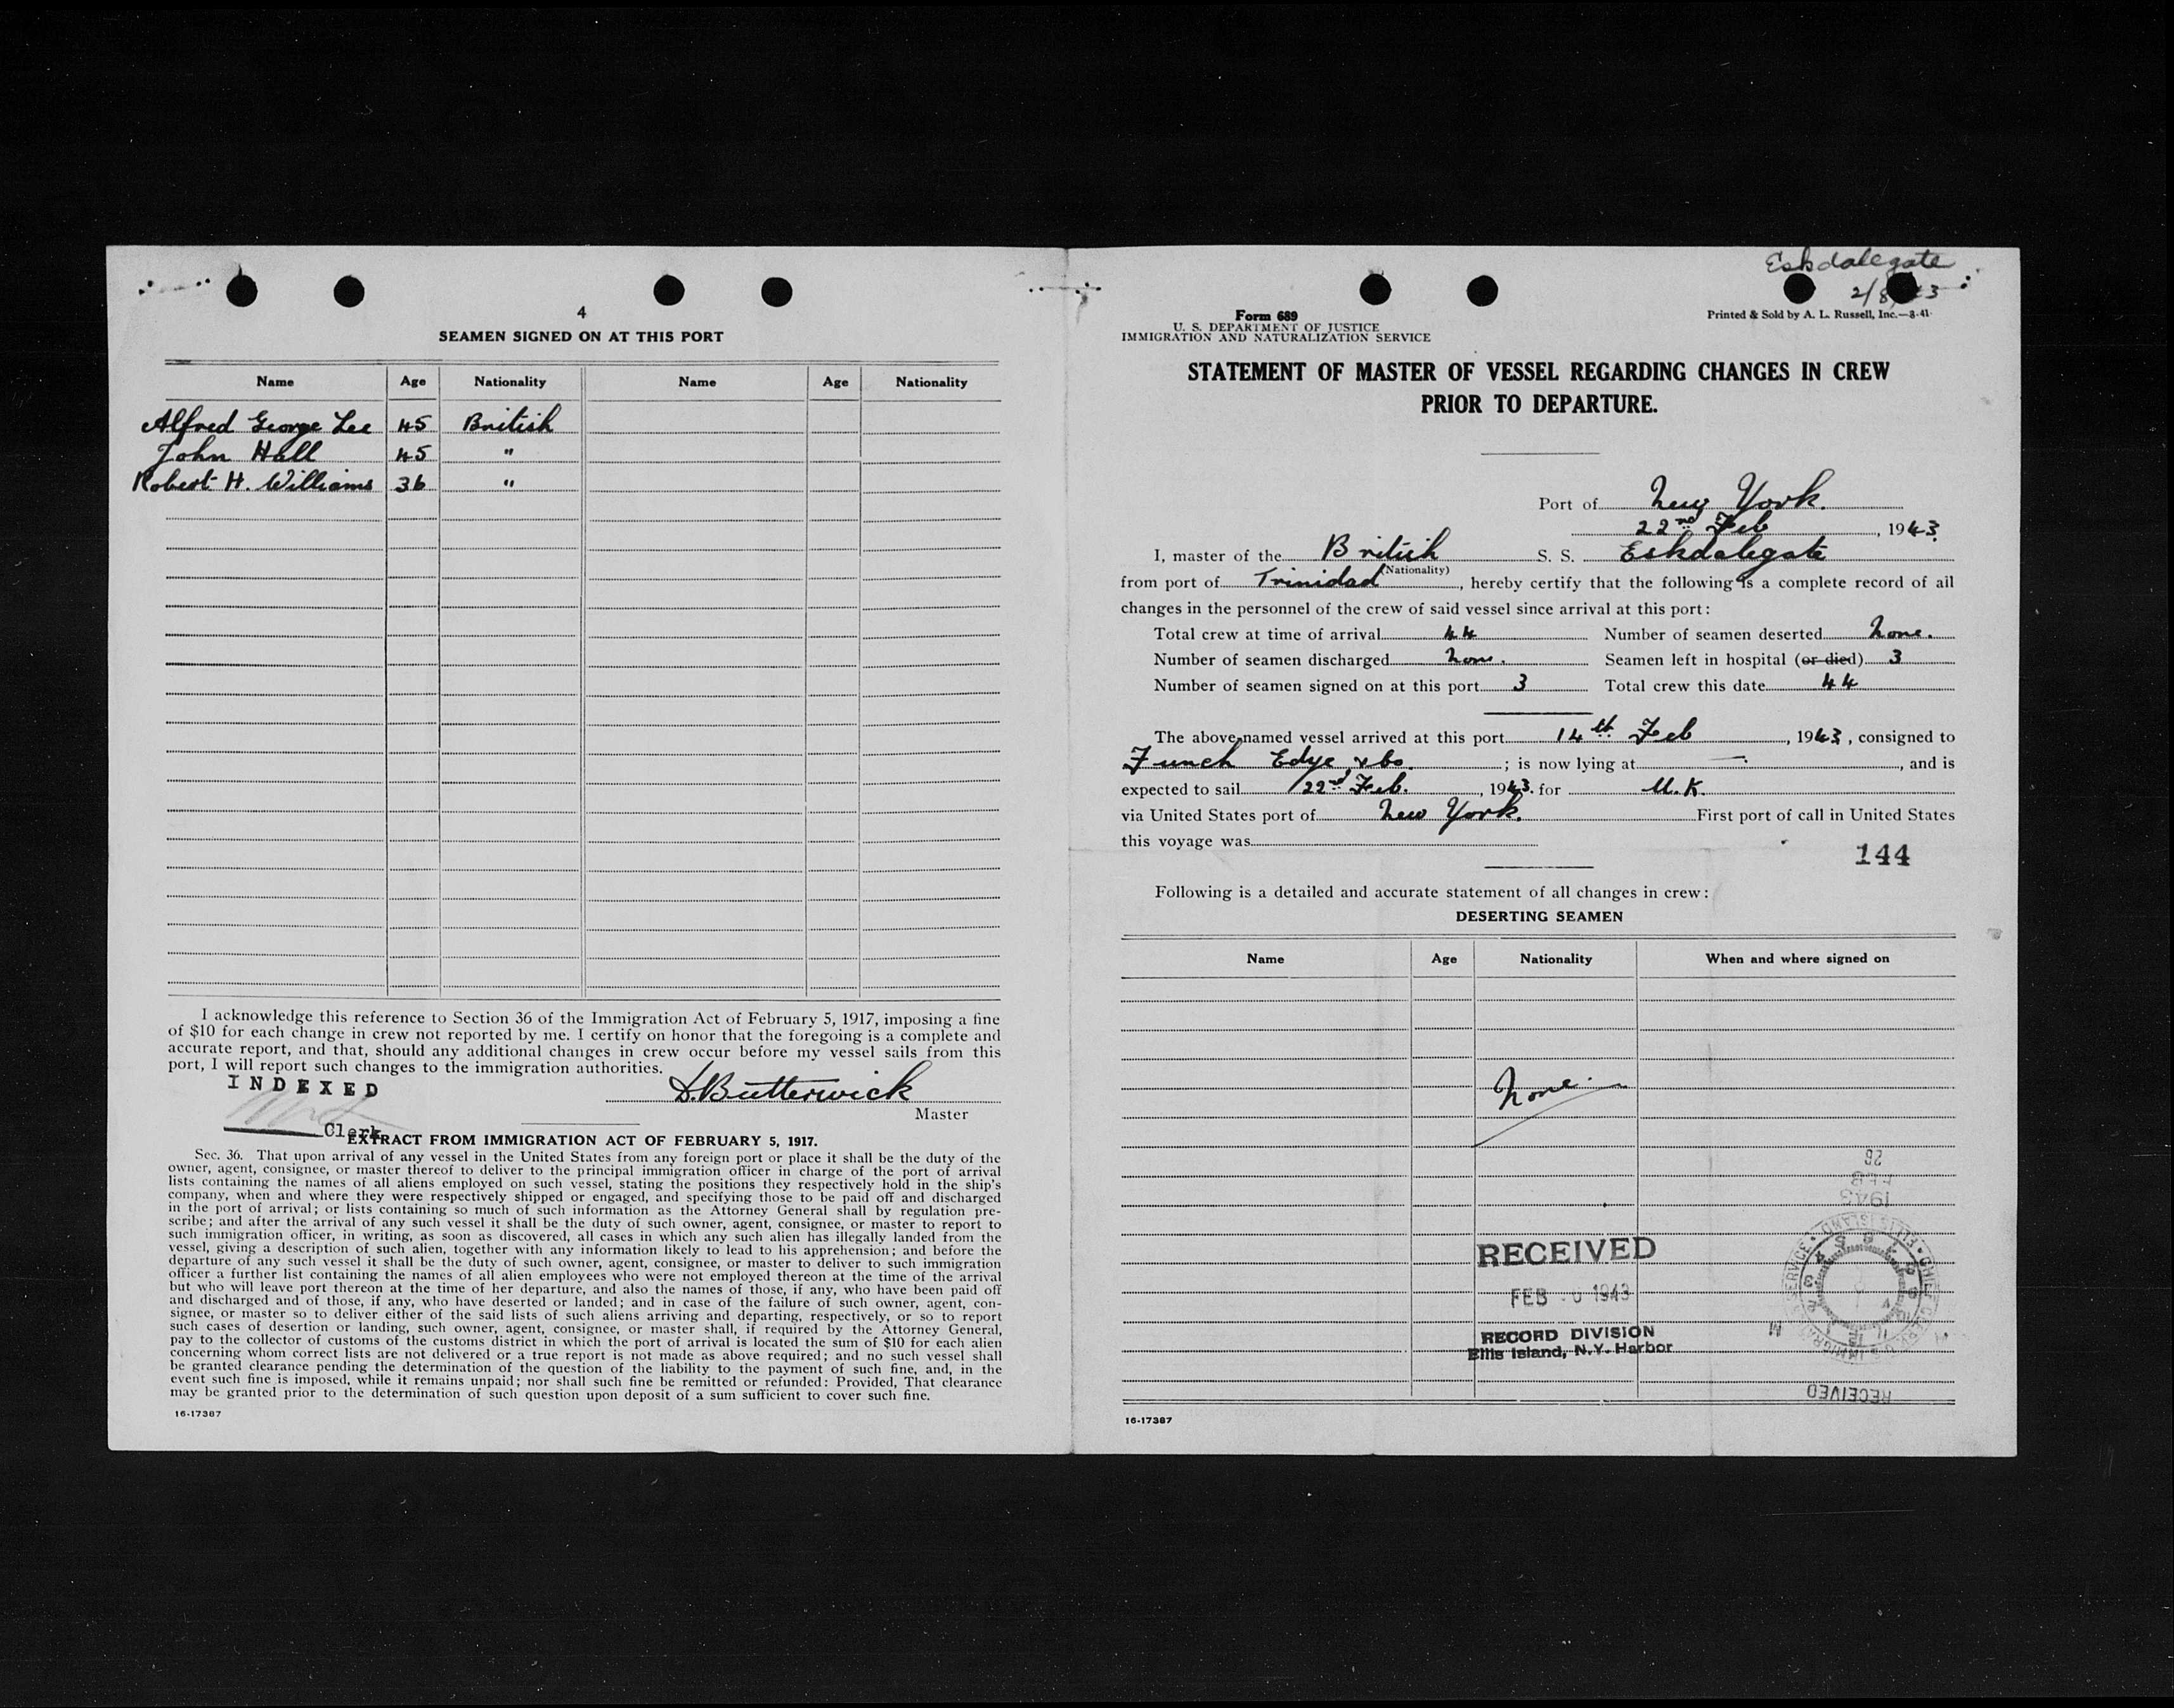 4
SEAMEN SIGNED ON AT THIS PORT
Name Age Nationality Name Age Nationality
Alfred George Lee 45 British
John Hall 45 "
Robert H. Williams 36 "
I acknowledge this reference to Section 36 of the Immigration Act of February 5, 1917, imposing a fine
of $10 for each change in crew not reported by me. I certify on honor that the foregoing is a complete and
accurate report, and that, should any additional changes in crew occur before my vessel sails from this
port, I will report such changes to the immigration authorities.
INDEXED
Butterwick
Master
Clerk
EXTRACT FROM IMMIGRATION ACT OF FEBRUARY 5, 1917.
Sec. 36. That upon arrival of any vessel in the United States from any foreign port or place it shall be the duty of the
owner, agent, consignee, or master thereof to deliver to the principal immigration officer in charge of the port of arrival
lists containing the names of all aliens employed on such vessel, stating the positions they respectively hold in the ship's
company, when and where they were respectively shipped or engaged, and specifying those to be paid off and discharged
in the port of arrival; or lists containing so much of such information as the Attorney General shall by regulation pre-
scribe; and after the arrival of any such vessel it shall be the duty of such owner, agent, consignee, or master to report to
such immigration officer, in writing, as soon as discovered, all cases in which any such alien has illegally landed from the
vessel, giving a description of such alien, together with any information likely to lead to his apprehension; and before the
departure of any such vessel it shall be the duty of such owner, agent, consignee, or master to deliver to such immigration
officer a further list containing the names of all alien employees who were not employed thereon at the time of the arrival
but who will leave port thereon at the time of her departure, and also the names of those, if any, who have been paid off
and discharged and of those, if any, who have deserted or landed; and in case of the failure of such owner, agent, con-
signee, or master so to deliver either of the said lists of such aliens arriving and departing, respectively, or so to report
such cases of desertion or landing, such owner, agent, consignee, or master shall, if required by the Attorney General,
pay to the collector of customs of the customs district in which the port of arrival is located the sum of $10 for each alien
concerning whom correct lists are not delivered or a true report is not made as above required; and no such vessel shall
be granted clearance pending the determination of the question of the liability to the payment of such fine, and, in the
event such fine is imposed, while it remains unpaid; nor shall such fine be remitted or refunded: Provided, That clearance
may be granted prior to the determination of such question upon deposit of a sum sufficient to cover such fine.
16-17387
Eskdalegate
Form 689
U. S. DEPARTMENT OF JUSTICE
IMMIGRATION AND NATURALIZATION SERVICE
Printed & Sold by A. L. Russell, Inc.—8-41
STATEMENT OF MASTER OF VESSEL REGARDING CHANGES IN CREW
PRIOR TO DEPARTURE.
Port of New York.
22nd Feb, 1943
I, master of the British S. S. Eskdalegate
(Nationality)
from port of Trinidad, hereby certify that the following is a complete record of all
changes in the personnel of the crew of said vessel since arrival at this port:
Total crew at time of arrival 44 Number of seamen deserted None.
Number of seamen discharged None. Seamen left in hospital (or died) 3
Number of seamen signed on at this port 3 Total crew this date 44
The above-named vessel arrived at this port 14th Feb, 1943, consigned to
Funch Edye & Co.; is now lying at —, and is
expected to sail 22nd Feb., 1943. for U.K.
via United States port of New York. First port of call in United States
this voyage was
144
Following is a detailed and accurate statement of all changes in crew:
DESERTING SEAMEN
Name Age Nationality When and where signed on
None.
26
FEB
1943
RECEIVED
FEB 1943
RECORD DIVISION
Ellis Island, N.Y. Harbor
RECEIVED
16-17387